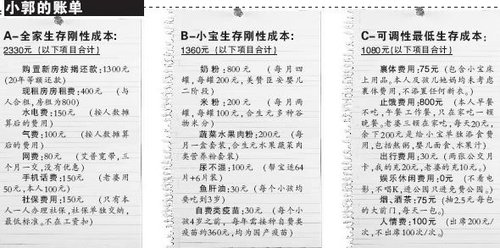 小郭的账单
A-全家生存刚性成本:
2330元(以下项目合计)
购置新房按揭还款:1300元
(20年等额还款)
现租房房租费:400元 (与
人合租,房租为800)
水电费:150元 (按人数摊
算后的费用)
气费:100元 (按人数摊算
后的费用)
网费:80元 (艾普宽带,三
个月一交,没有优惠)
手机话费:150元 (老婆用
50元,本人100元)
社保费用:150元 (只有本
人一人办理社保,社保单独交纳,
最低标准,不在工资扣)
B-小宝生存刚性成本:
1360元(以下项目合计)
奶粉:800元 (每月四
罐,每罐200元,美赞臣安婴儿
二阶段)
米粉:200元 (每月两
罐,每罐100元,合生元多种谷
物米分)
蔬菜水果肉粉:200元 (每
月一盒套装,合生元水果蔬菜肉
类营养粉套装)
尿不湿:100元 (帮宝适64
片+6片装)
鱼肝油:30元 (每个小孩均
要吃到3岁)
自费类疫苗:30元 (每个小
孩4岁之前,每年需接种自费类
疫苗约360元,均为国产疫苗)
C-可调性最低生存成本:
1080元(以下项目合计)
裹体费用:75元 (包含小宝床
上用品,本人及孩儿她妈均未考虑
裹体费用,不添置任何新衣。)
止饿费用:800元 (本人早餐
不吃,午餐工作餐,只在家吃一顿
晚餐,老婆三顿在家吃;每天20元,
余下200元是给小宝单独添食费
用,包括熬粥、婴儿面食、水果汁)
出行费用:30元 (两张公交月
卡,我的充20元,老婆的充10元。)
娱乐休闲费用:0元 (不看电
影,不唱K,进公园只进免费公园。)
烟、酒、茶:75元 (抽2.5元每包
的大前门,每天一包。)
人情费:100元 (出席200元/
次,不出席100元/次。)